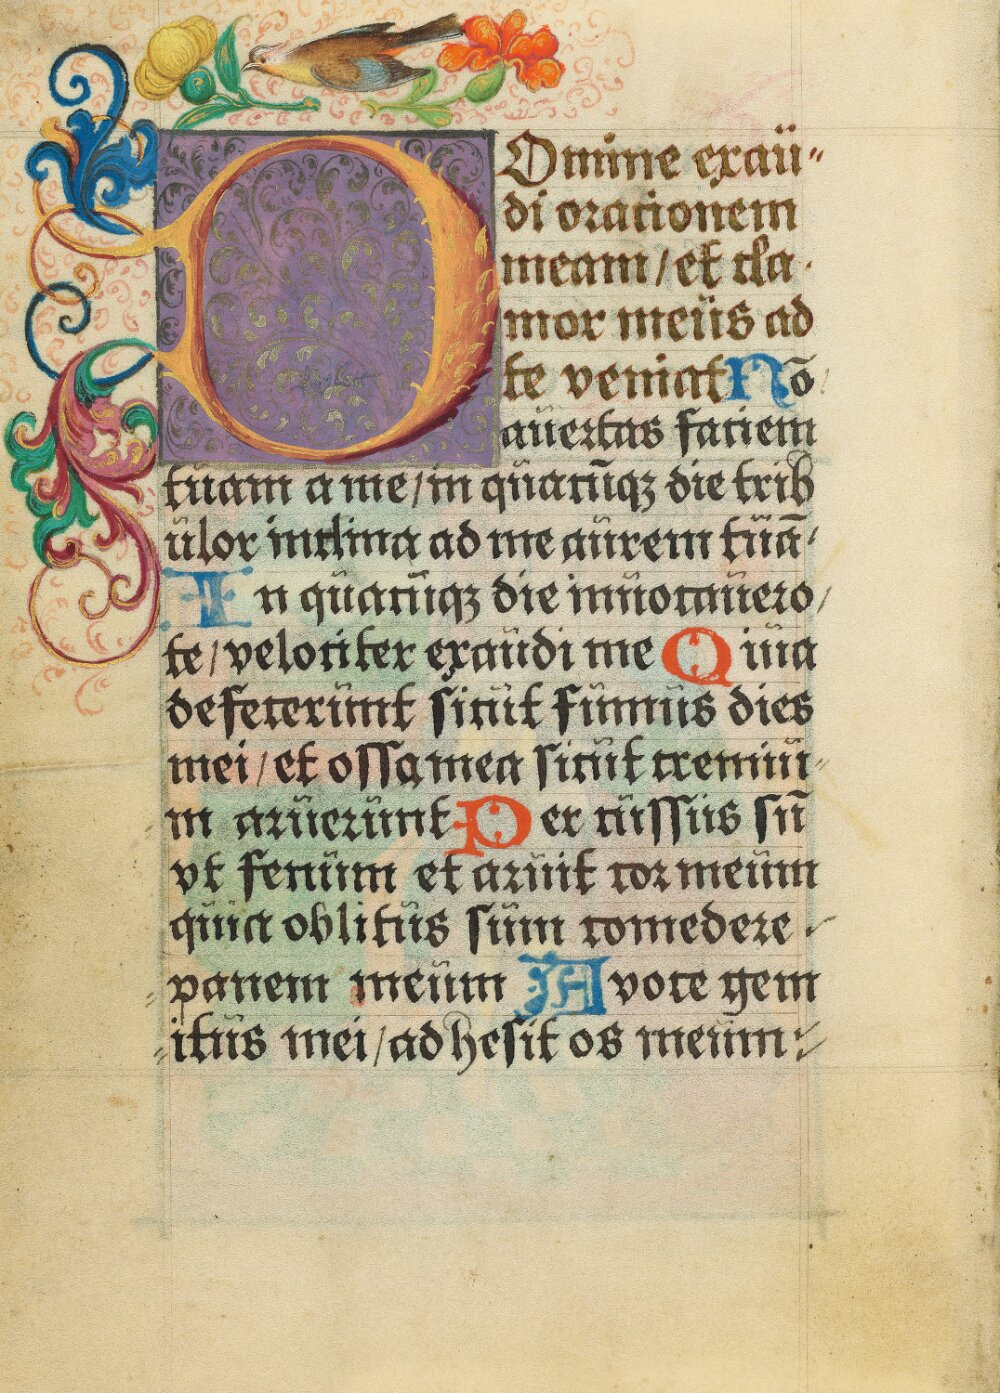 Domine exaü"
di orationem
meam / et cla
mor meüs ad
te veniat No
aüertas faciem
tüam a me / in qüacüq̄ꝫ die trib
ülor inclina ad me aürem tüā
In qüacüq̄ꝫ die inüocaüero /
te / velociter exaüdi me Qiüa
defecerünt sicüt fümüs dies
mei / et ossa mea sicüt cremiü
m arüerünt Per cüssüs sū
vt fenüm et arüit cor meüm
qüia oblitüs süm comedere
panem meüm A voce gem
itüs mei / adhesit os meüm